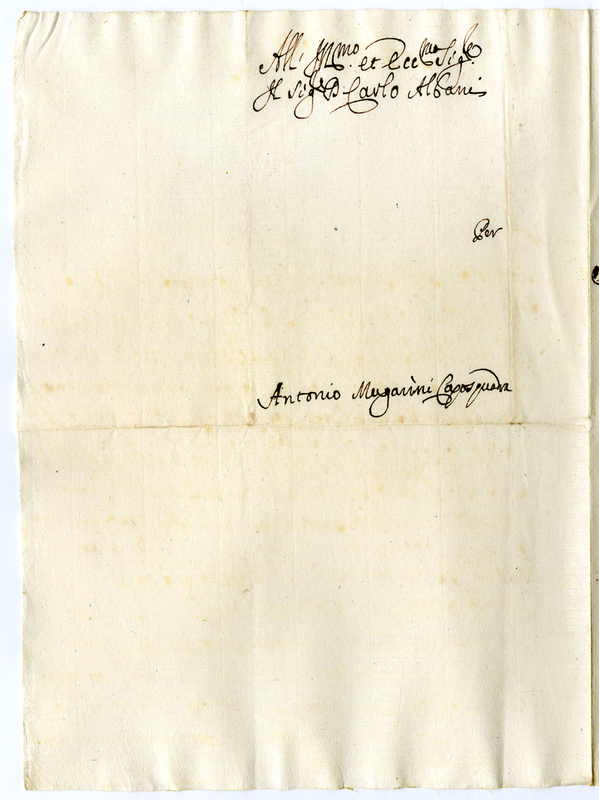 All' Ill.mo et Ecc.mo Sig.re
Il Sig.r D Carlo Albani
Per
Antonio Mugarini Caposquadra